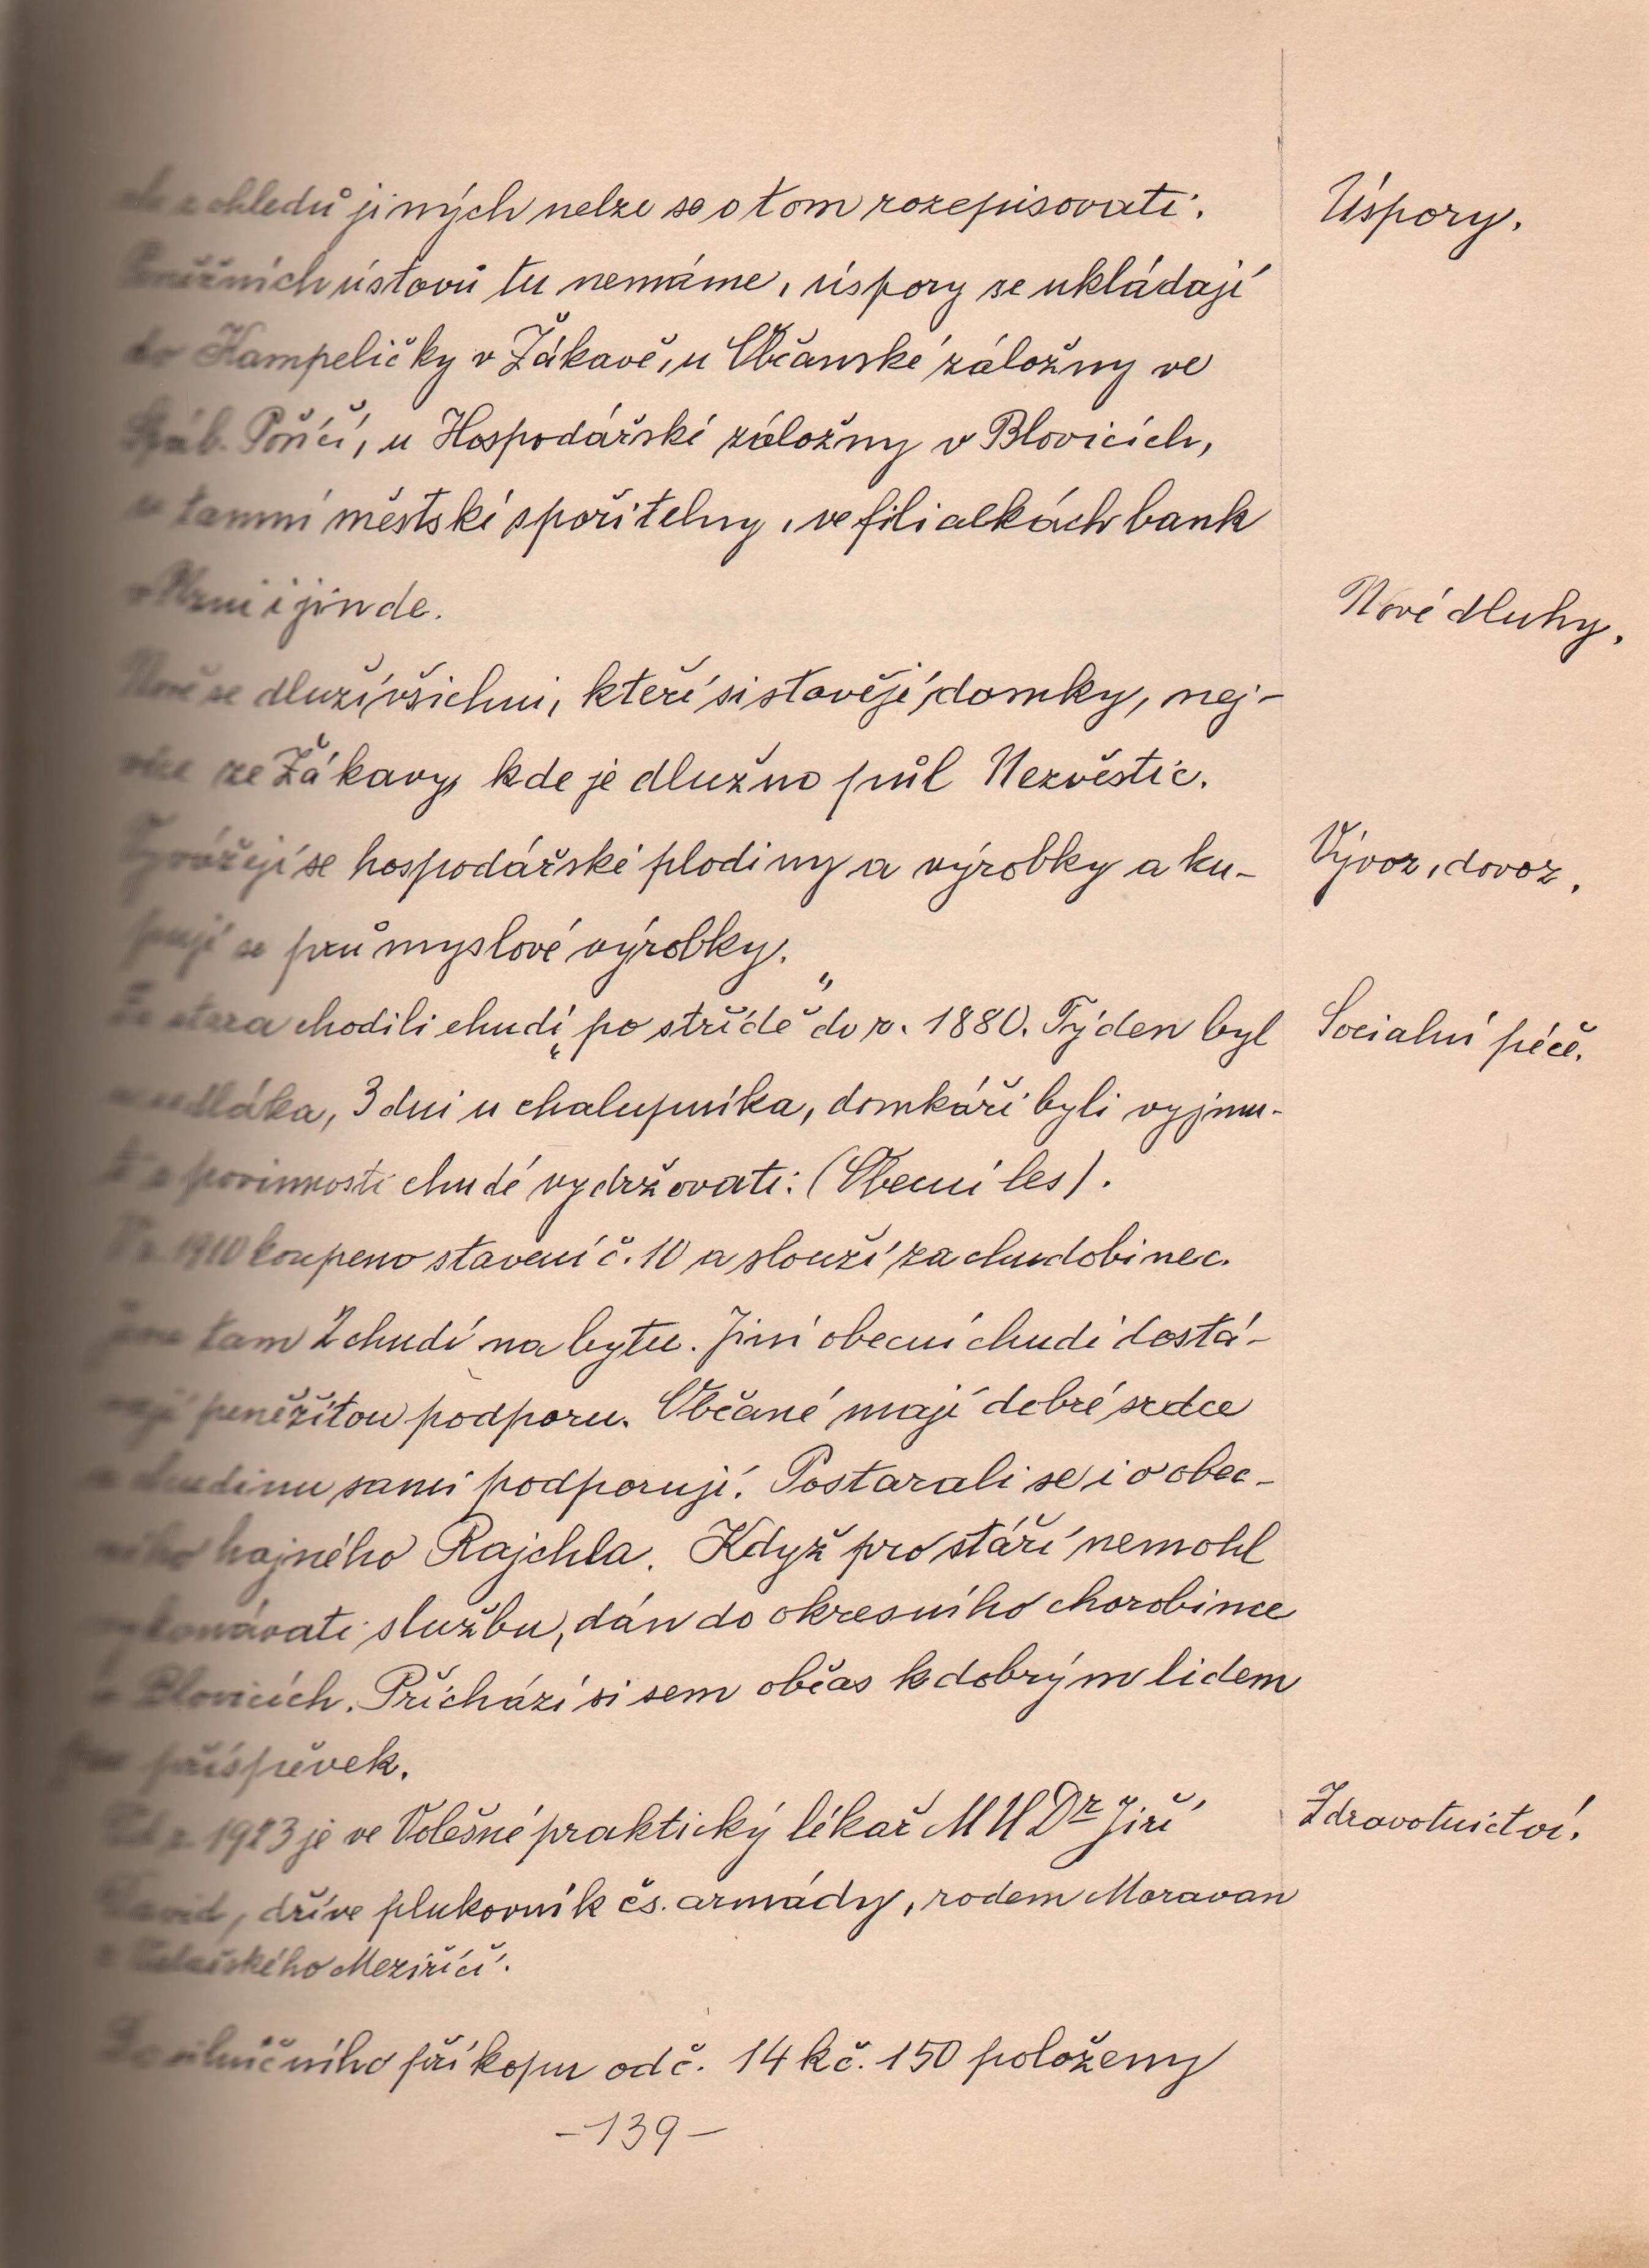 ohledů jiných nelze se o tom rozepisovati.
Úspory.
Peněžních ústavů tu nemáme, úspory se ukládají
do Kampeličky v Žákavě, u Občanské záložny ve
Spál. Poříčí, u Hospodářské záložny v Blovicích,
u tamní městské spořitelny, ve filialkách bank
v Plzni i jinde.
Nové dluhy.
Nově se dluží všichni, kteří si stavějí domky, nej-
více ze Žákavy, kde je dlužno půl Nezvěstic.
Vyvážejí se hospodářské plodiny a výrobky a ku-
Vývoz, dovoz.
pují se průmyslové výrobky.
Ze stara chodili chudí „po střídě" do r. 1880. Týden byl
Socialní péče.
u sedláka, 3 dni u chalupníka, domkáři byli vyjmu-
ti z povinnosti chudé vydržovati. (Obecní les).
V r. 1910 koupeno stavení č. 10 a slouží za chudobinec.
Jsou tam 2 chudí na bytu. Jiní obecní chudí dostá-
vají peněžitou podporu. Občané mají dobré srdce
a chudinu sami podporují. Postarali se i o obec-
ního hajného Rajchla. Když pro stáří nemohl
vykonávati službu, dán do okresního chorobince
v Blovicích. Přichází si sem občas k dobrým lidem
pro příspěvek.
Od r. 1923 je ve Volešné praktický lékař MUDr Jiří
Zdravotnictví.
David, dříve plukovník čs. armády, rodem Moravan
z Valašského Meziříčí.
Do silničního příkopu od č. 14 k č. 150 položeny
-139-